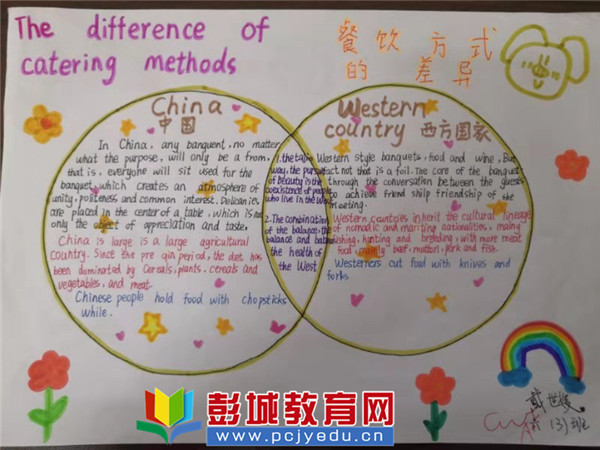 The difference of
catering methods
餐饮方式
的差异
China
中国
In China, any banquent, no matter
what the purpose, will only be a from,
that is, everyone will sit used for the
banquet, which creates an atmosphere of
unity, politeness and common interest. Delicanies
are placed in the center of a table, which is not
only the object of appreciation and taste,
China is large is a large agricultural
country. Since the pre qin period, the diet has
been dominated by cereals, plants, cereals and
vegetables, and meat.
Chinese people hold food with chopsticks
while.
1. the table
way, the pursuit
of beauty is the
coexistence of people
who live in the West
2. The combination
of the balance, the
balance and balance
the health of
the West
Western
country 西方国家
Western style banquets, food and wine, But
fact not that is a foil. The core of the banquet
through the conversation between the guests
to achieve friend ship friendship of the
meeting.
Western countries inherit the cultural lineage
of nomadic and mariting nationalities, mainly
fishing, hunting and breeding, with more meat
food, mainly beef, mutton, pork and fish.
Westerners cut food with knives and
forks
六(3)班
彭城教育网
www.pcjyedu.cn